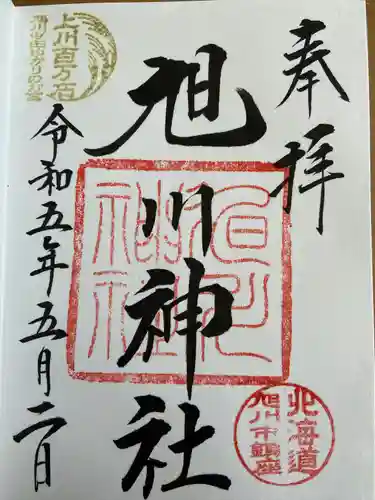 奉拝
旭川神社
令和五年五月二日
上川百万石
旭川神社
北海道
旭川市鎮座